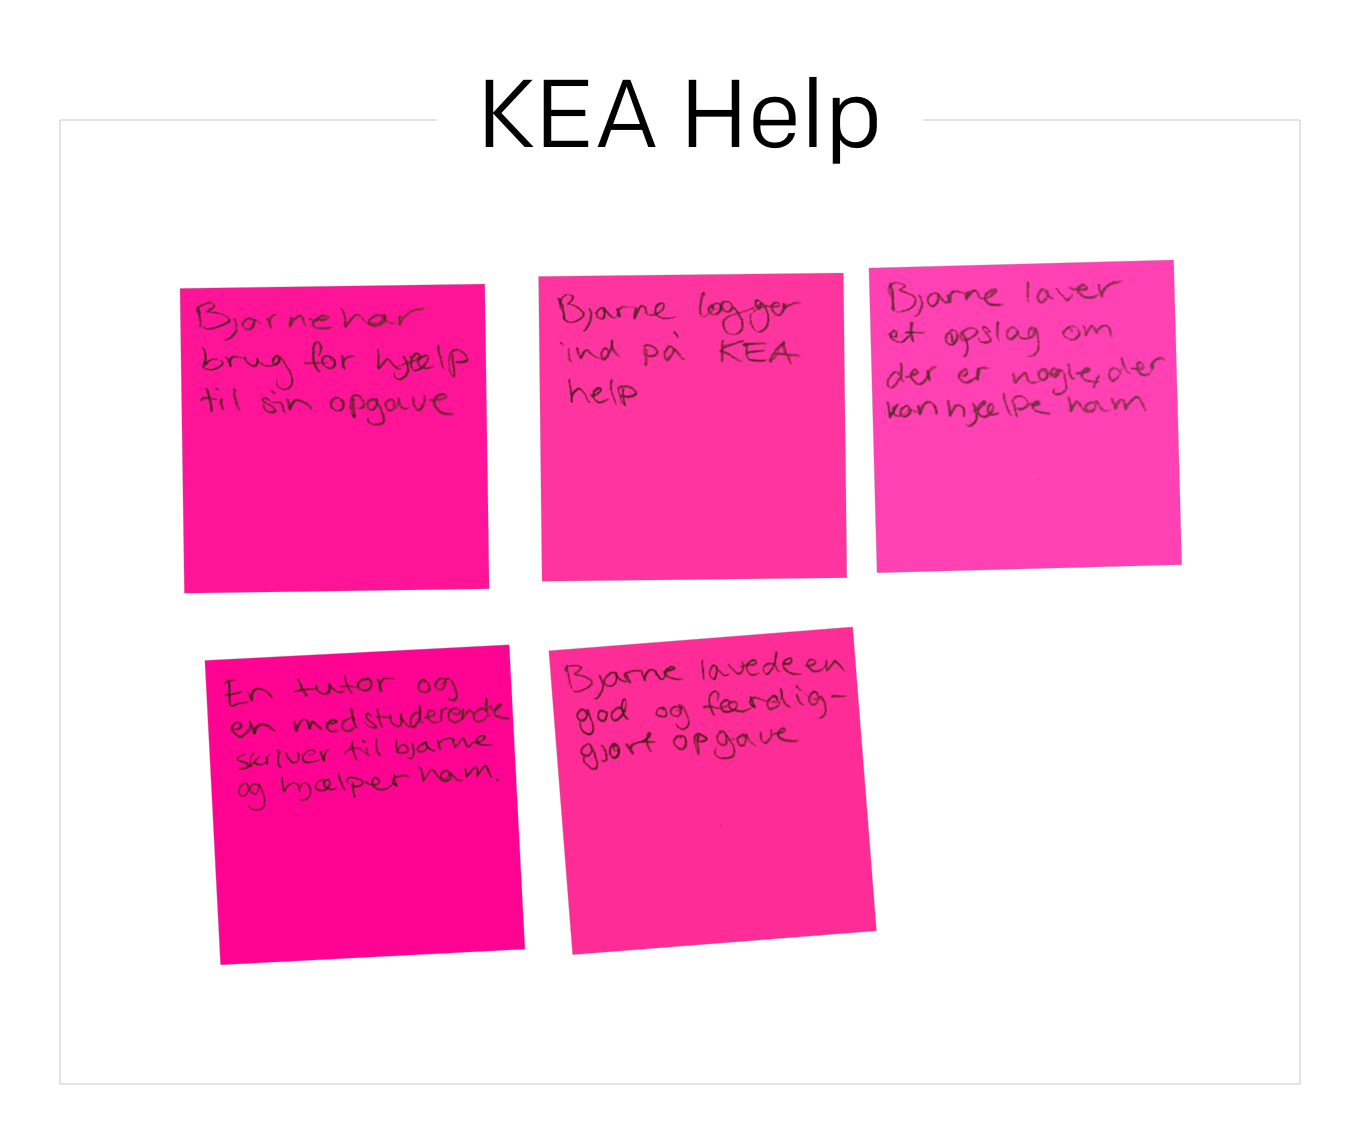 KEA Help
Bjarne har
brug for hjælp
til sin opgave
Bjarne logger
ind på KEA
help
Bjarne laver
et opslag om
der er nogle, der
kan hjælpe ham
En tutor og
en medstuderende
skriver til bjarne
og hjælper ham.
Bjarne lavede en
god og færdig-
gjort opgave